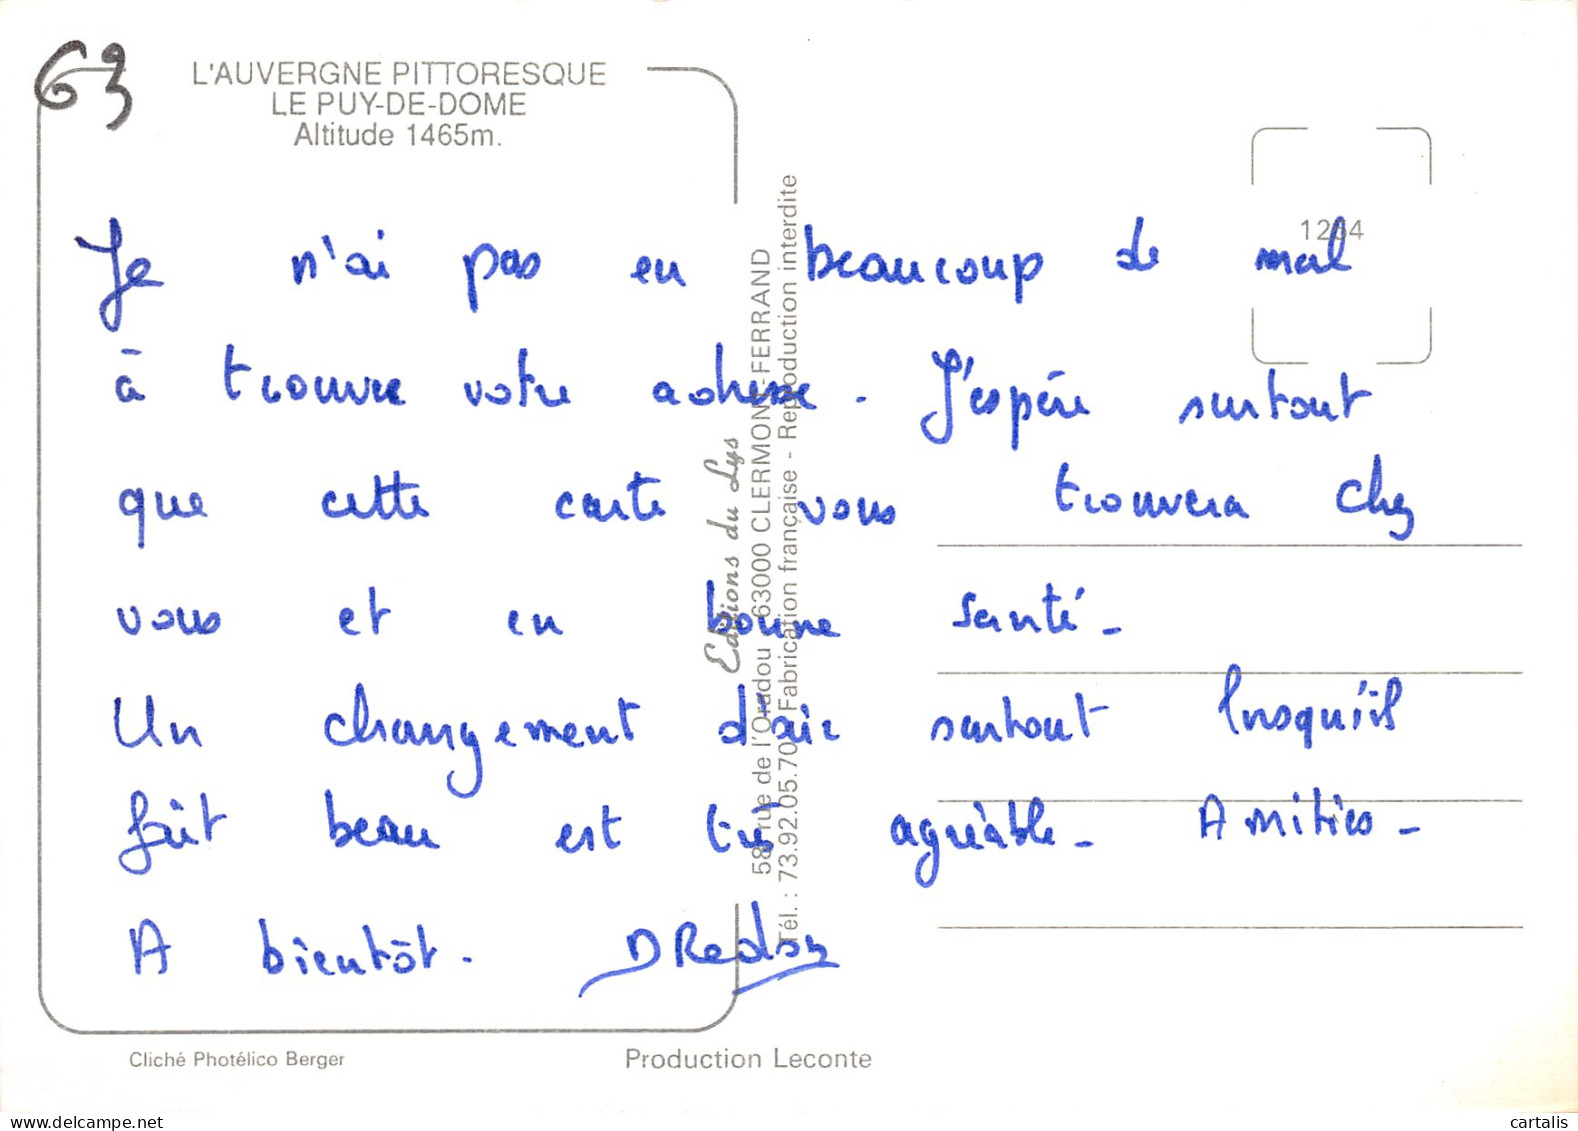 63
L'AUVERGNE PITTORESQUE
LE PUY-DE-DOME
Altitude 1465m.
1264
Je n'ai pas eu beaucoup de mal
à trouver votre adresse. J'espère surtout
que cette carte vous trouvera chez
vous et en bonne santé -
Un changement d'air surtout lorsqu'il
fait beau est très agréable - Amitiés -
A bientôt. DRedon
Editions du Lys
58, rue de l'Oradou 63000 CLERMONT-FERRAND
Tél. : 73.92.05.70 - Fabrication française - Reproduction interdite
Cliché Photélico Berger
Production Leconte
cartalis